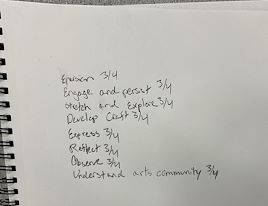 3/4
Engage and persist 3/4
Stetch and Explore 3/4
Develop Craft 3/4
Express 3/4
Reflect 3/4
Observe 3/4
Understand arts community 3/4